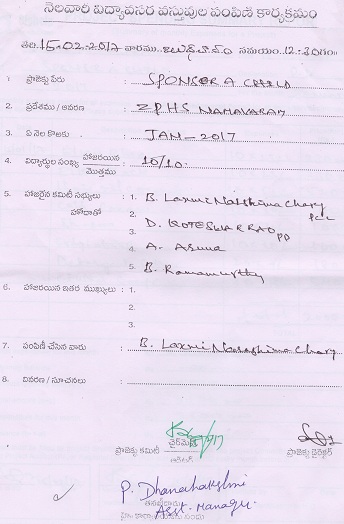 నెలవారీ విద్యావసర వస్తువుల పంపిణి కార్యక్రమం
తేది.15-02-2017 వారము..బుధవారం సమయం.12-30గంట
1 ప్రాజెక్టు పేరు : SPONSOR A CHILD
2. ప్రదేశము / ఆవరణ : ZPHS NAMAVARAM
3. ఏ నెల కొఱకు : JAN-2017
4. విద్యార్థుల సంఖ్య హాజరయిన/మొత్తము : 10/10
5. హాజరైన కమిటీ సభ్యులు : 1. B. Laxmi Narshima Chary
హోదాతో 2. D. KOTESWAR RAO PD
3.
4. A. Asuna
5. B. Ramamurthy
6. హాజరయిన ఇతర ముఖ్యులు : 1.
2.
3.
7. పంపిణీ చేసిన వారు : B. Laxmi Narashima Chary
8. వివరణ / సూచనలు :
ప్రాజెక్టు కమిటీ చైర్మైన్ ప్రాజెక్టు డైరెక్టర్
ఆడిటర్
P. Dhanalakshmi
Asst. Manager.